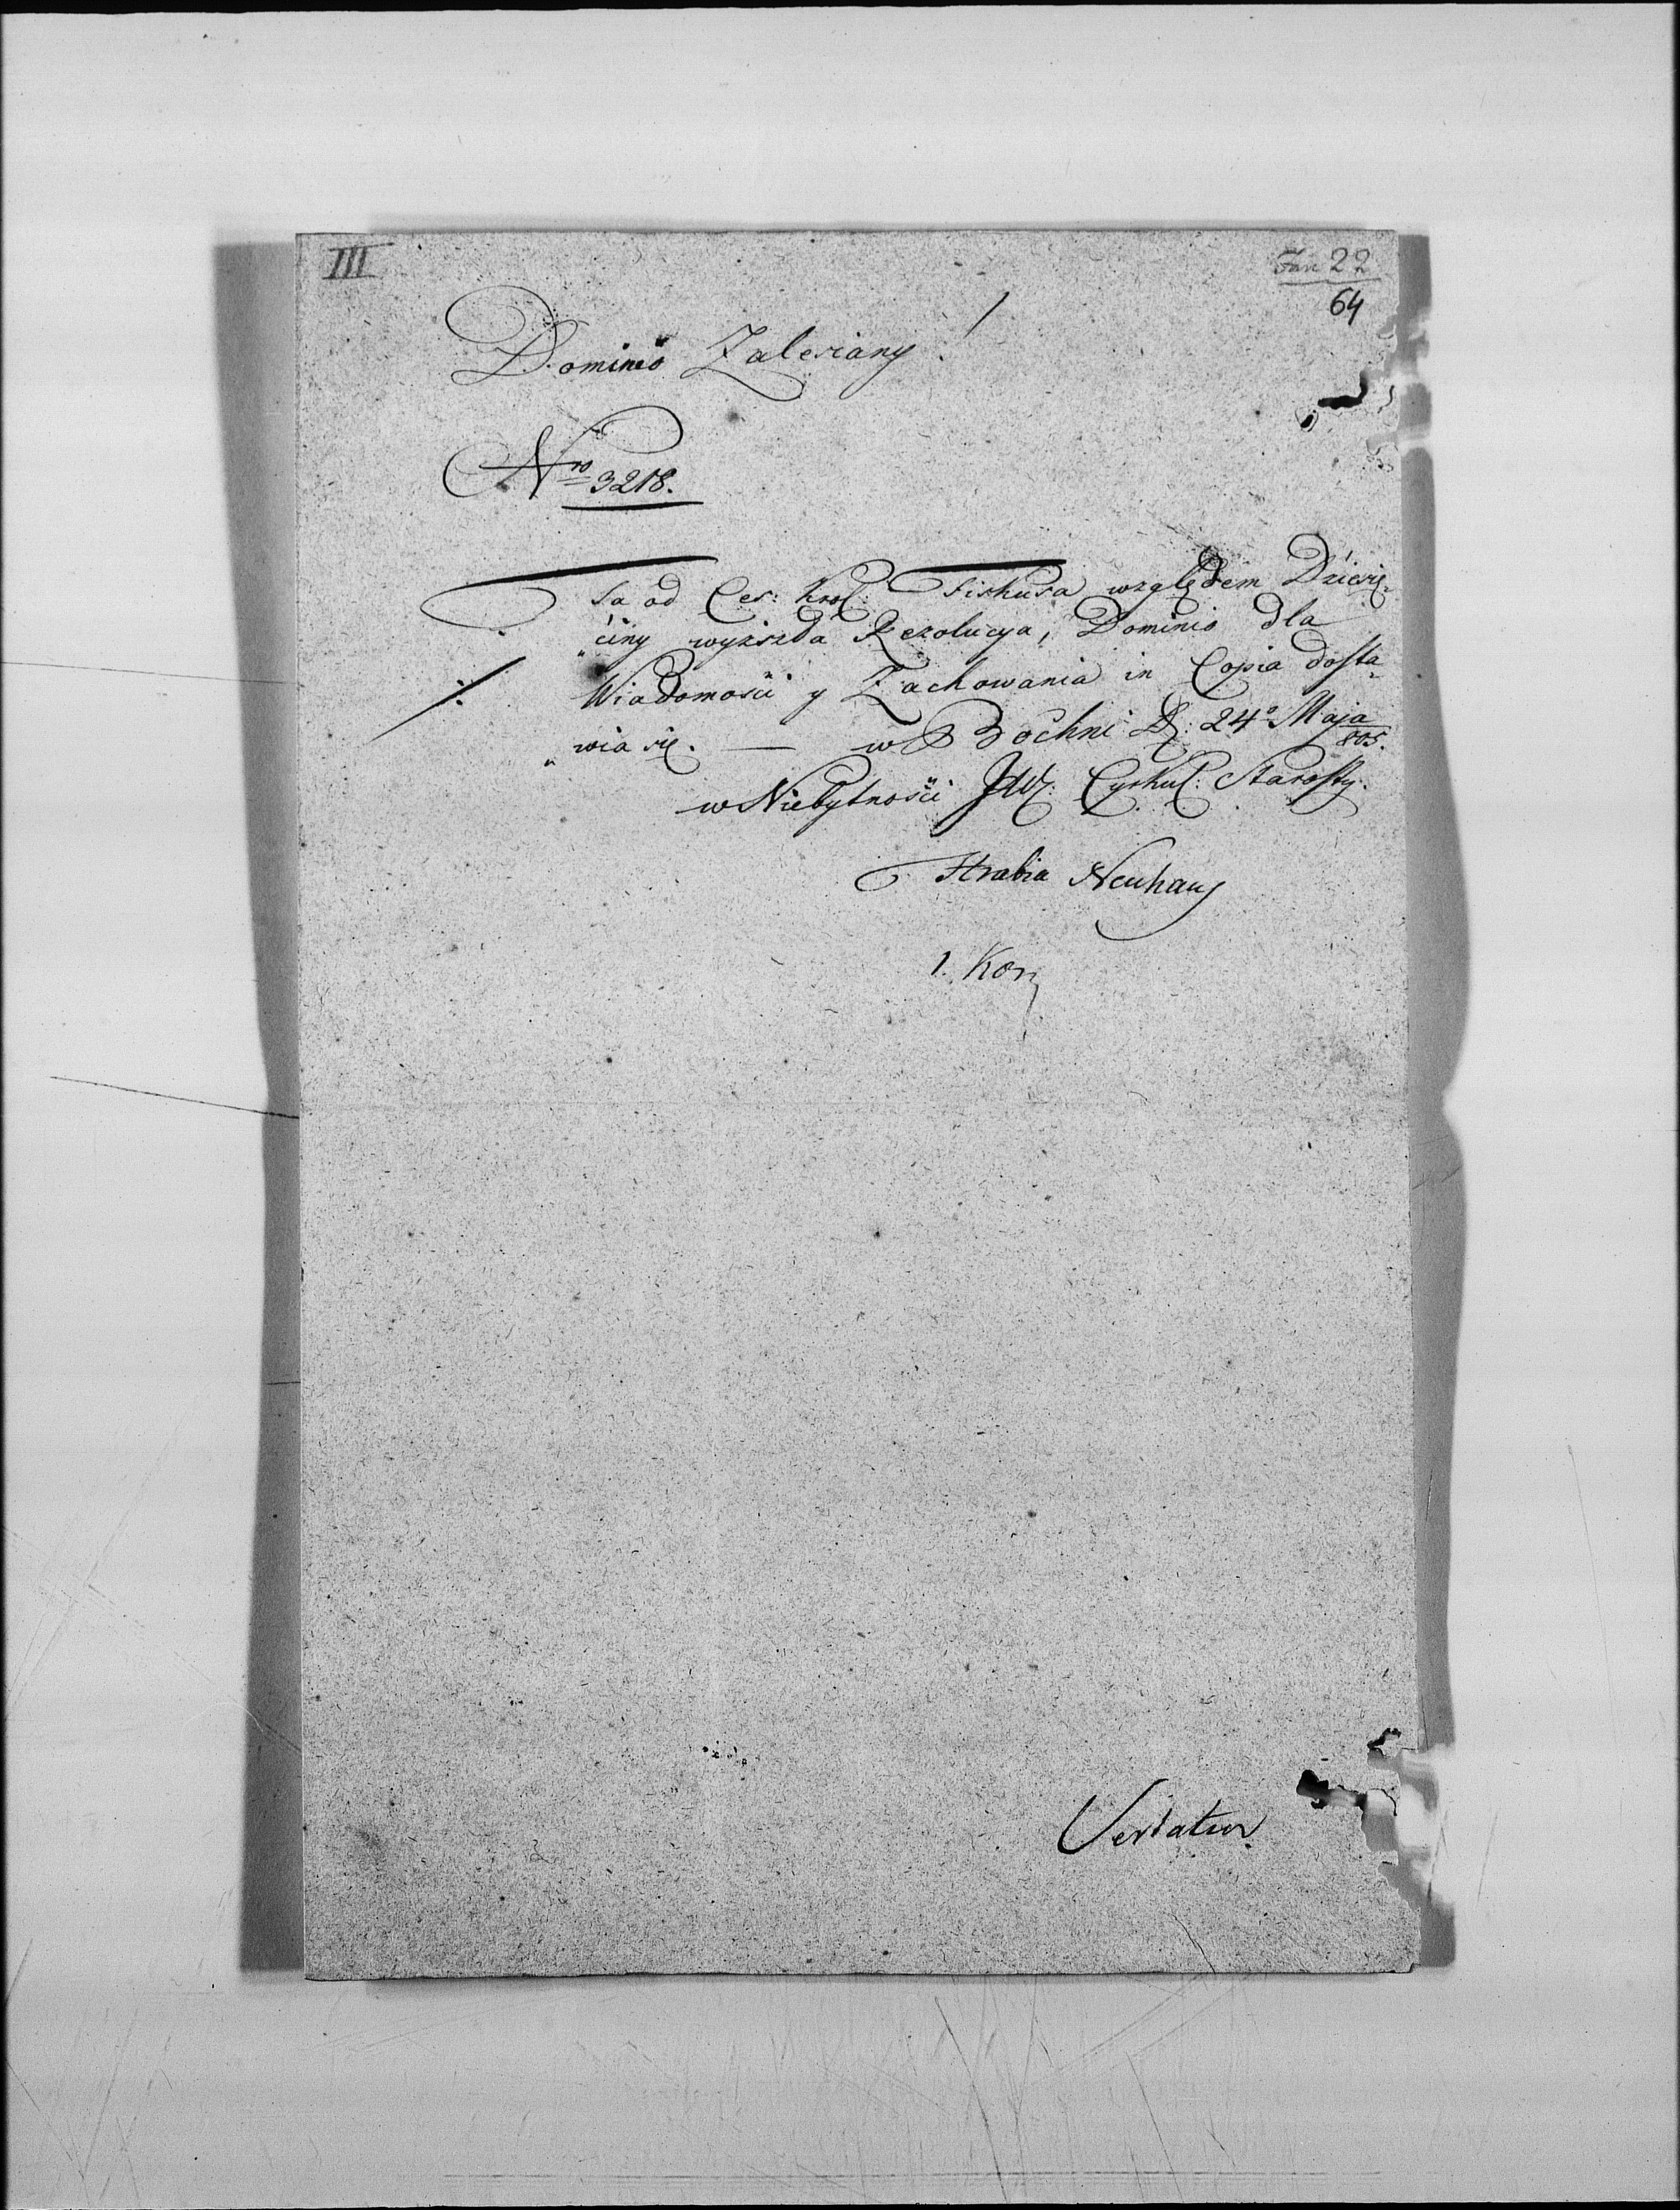 III
Fasc 22
64
Dominio Zalesiany!
Nro 3218.
Ta od Ces: Krol: Fiskusa względem Dziesię„
„ciny wyższa Rezolucya, Dominio dla
Wiadomości y Zachowania in Copia dosta„
„wia się. — w Bochni D: 24º Maja
805.
w Niebytności JW: Cyrkul: Starosty.
Hrabia Neuhaus
1. Kom
Vertatur